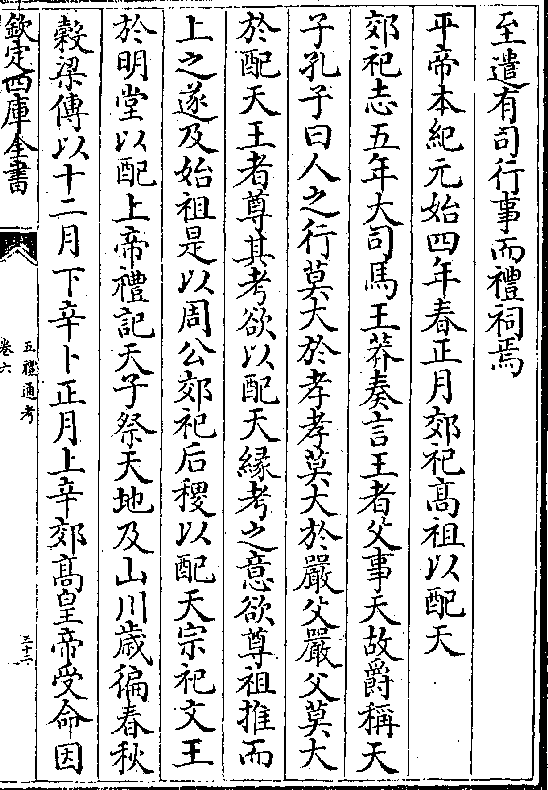 至遣有司行事而禮祠焉
平帝本紀元始四年春正月郊祀髙祖以配天
郊祀志五年大司馬王莽奏言王者父事天故爵稱天
子孔子曰人之行莫大於孝孝莫大於嚴父嚴父莫大
於配天王者尊其考欲以配天緣考之意欲尊祖推而
上之遂及始祖是以周公郊祀后稷以配天宗祀文王
於明堂以配上帝禮記天子祭天地及山川歲徧春秋
榖梁傳以十二月下辛卜正月上辛郊髙皇帝受命因
欽定四庫全書
五禮通考
卷六
三十二